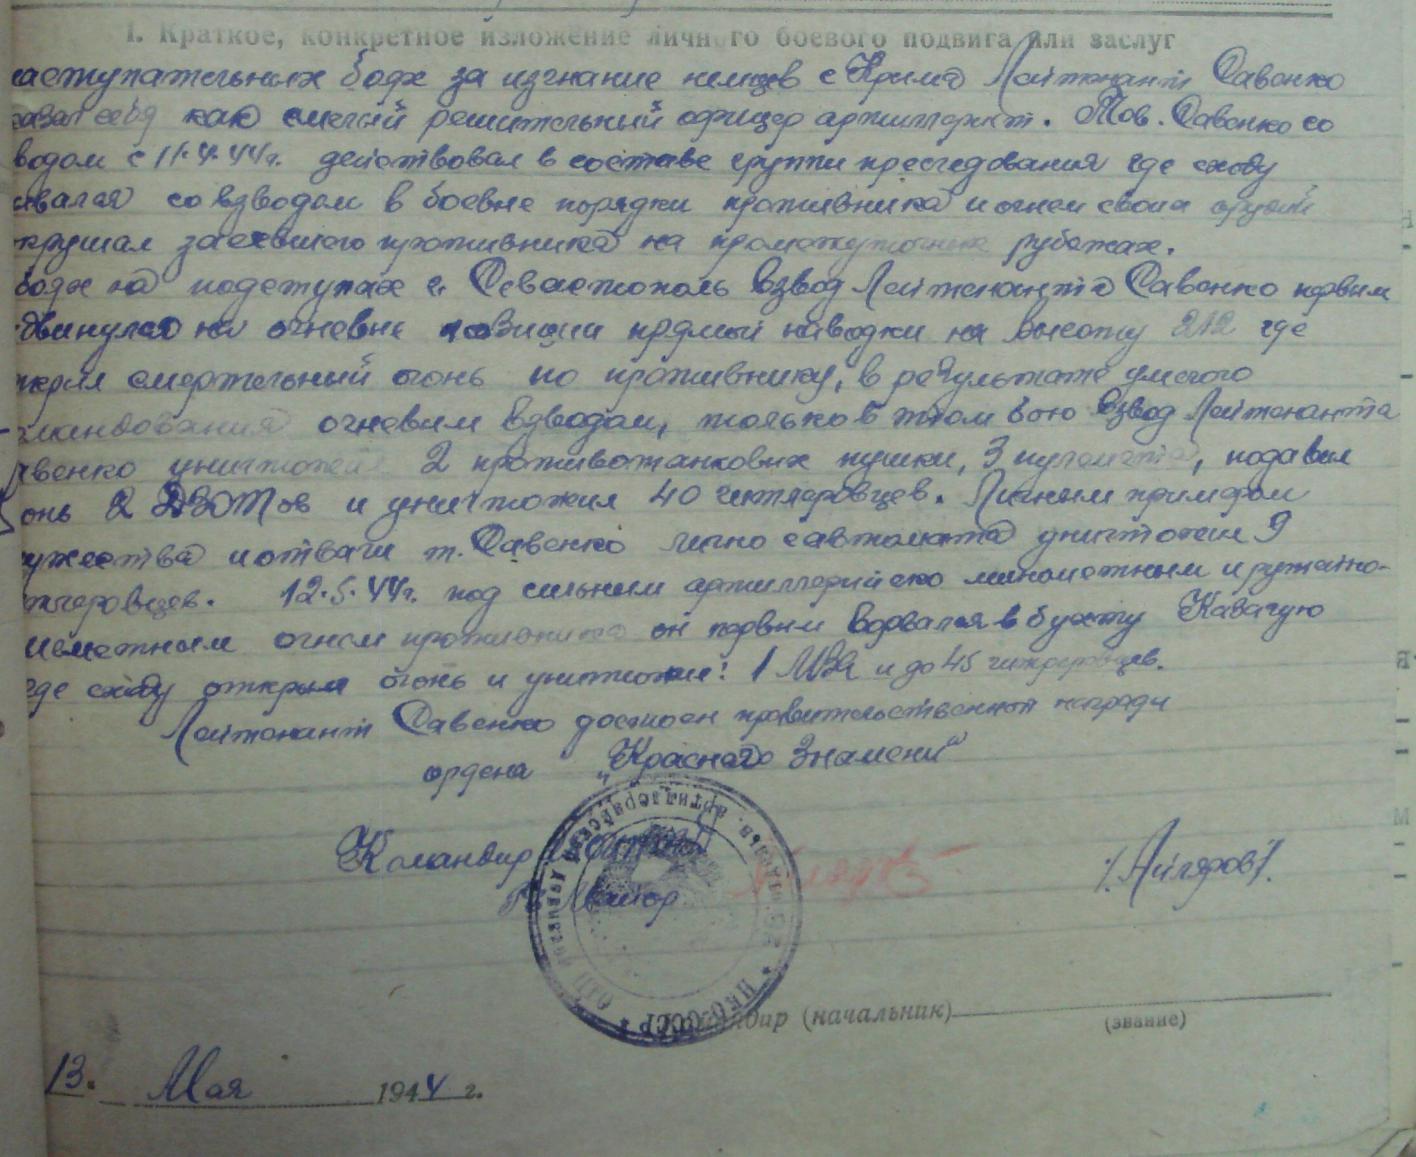 I. Краткое, конкретное изложение личного боевого подвига или заслуг
наступательных боях за изгнание немцев с Крыма Лейтенант Савенко
казал себя как смелый решительный офицер артиллерист. Тов. Савенко со
водом с 11.4.44г. действовал в составе группы преследования где сходу
вался со взводом в боевые порядки противника и огнем своих орудий
окрушал засевшего противника на промежуточных рубежах.
боях на подступах г. Севастополь взвод Лейтенанта Савенко первым
двинулся на огневые позиции прямой наводки на высоту 212 где
ткрыл смертельный огонь по противнику, в результате умелого
омандования огневым взводом, только в этом бою взвод Лейтенанта
авенко уничтожил 2 противотанковых пушки, 3 пулемета, подавил
онь 2 ДЗОТов и уничтожил 40 гитлеровцев. Личным примером
ужества и отваги т. Савенко лично с автомата уничтожил 9
итлеровцев. 12.5.44г. под сильным артиллерийско минометным и ружейно-
улеметным огнем противника он первым ворвался в бухту Казачую
где сходу открыл огонь и уничтожил: 1 и до 45 гитлеровцев.
Лейтенант Савенко достоен правительственной награды
ордена „Красного Знамени"
Командир
Майор
НКО СССР
Командир (начальник)
(звание)
13. Мая 1944 г.